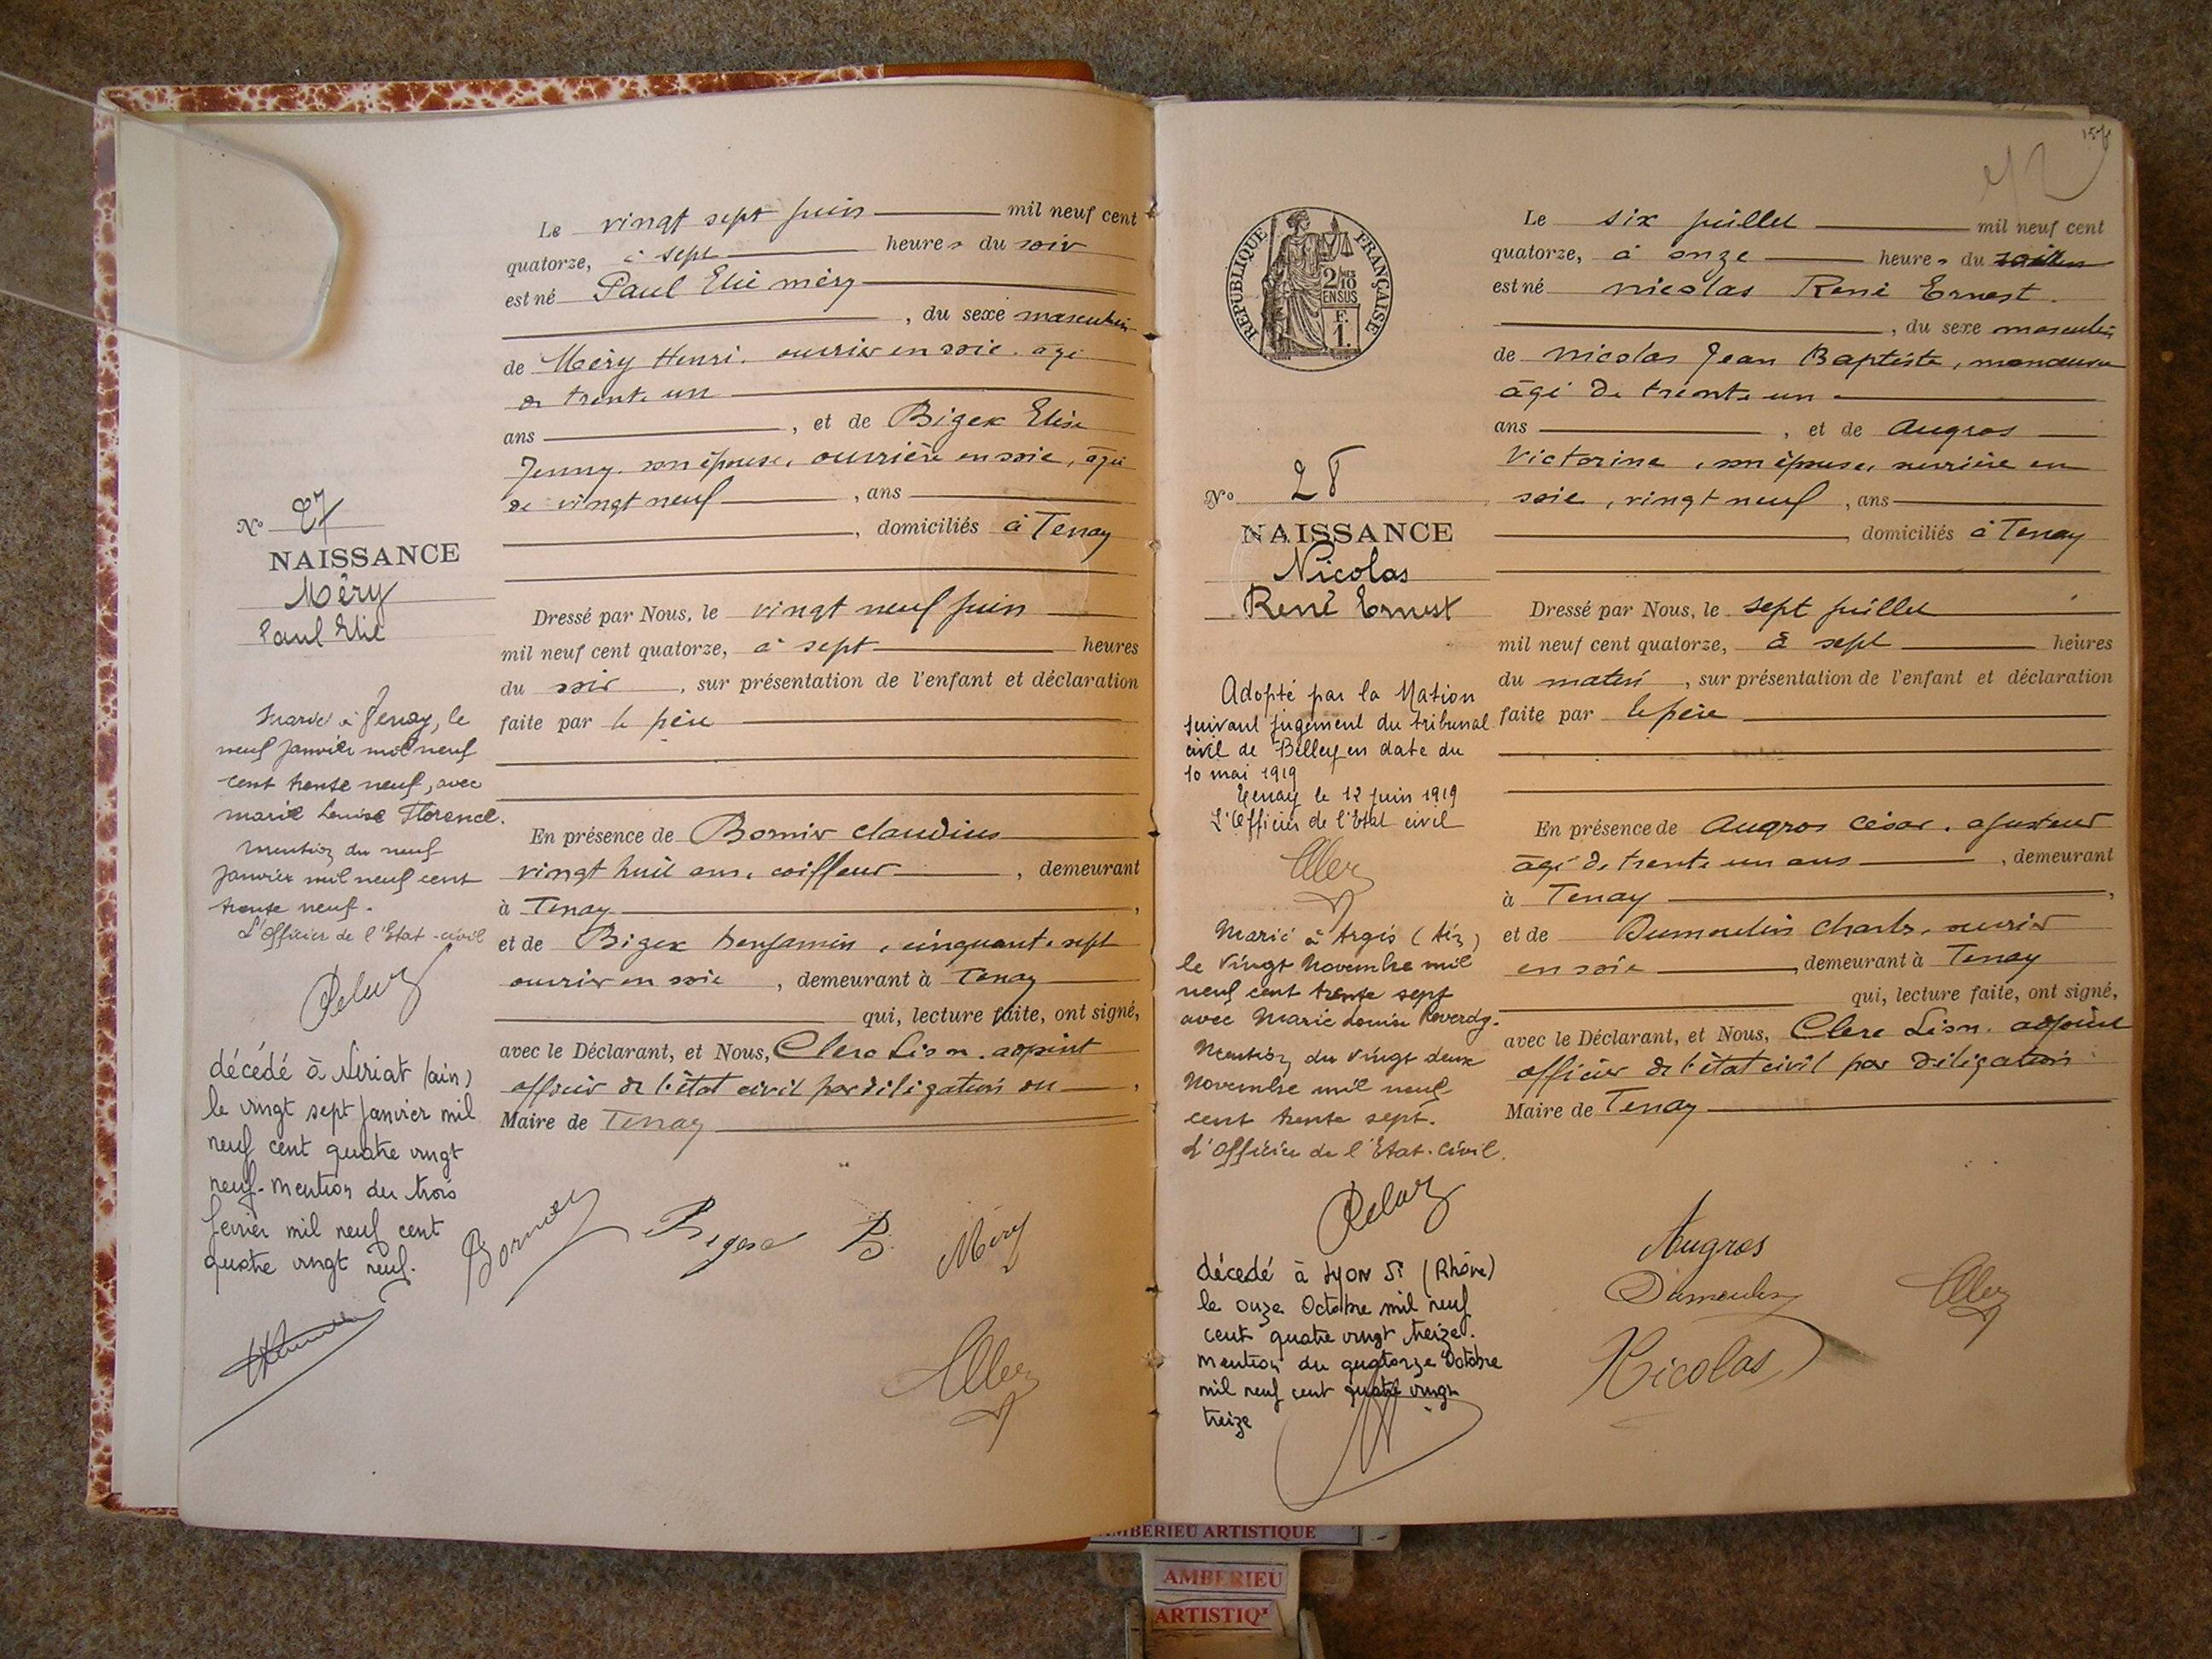 Le vingt sept juin mil neuf cent
quatorze, à sept heures du soir
est né Paul Elie Méry
, du sexe masculin
de Méry Henri, ouvrier en soie, âgé
de trente un
ans , et de Bigex Elise
Jenny, son épouse, ouvrière en soie, âgée
de vingt neuf , ans
, domiciliés à Tenay
Nº 27
NAISSANCE
Méry
Paul Elie
Dressé par Nous, le vingt neuf juin
mil neuf cent quatorze, à sept heures
du soir , sur présentation de l'enfant et déclaration
faite par le père
En présence de Bornier Claudius
vingt huit ans, coiffeur , demeurant
à Tenay ,
et de Bigex Benjamin, cinquante sept
ouvrier en soie , demeurant à Tenay
qui, lecture faite, ont signé,
avec le Déclarant, et Nous, Clerc Léon, adjoint
officier de l'état civil par délégation du ,
Maire de Tenay
Marié à Tenay, le
neuf janvier mil neuf
cent trente neuf, avec
Marie Louise Florence.
Mention du neuf
janvier mil neuf cent
trente neuf.
L'Officier de l'Etat-civil
décédé à Viriat (ain)
le vingt sept janvier mil
neuf cent quatre vingt
neuf. mention du trois
fevrier mil neuf cent
quatre vingt neuf.
Bornier Bigex B. Méry
157
REPUBLIQUE FRANÇAISE
2/10
EN SUS
F.
1.
Le six juillet mil neuf cent
quatorze, à onze heures du
est né Nicolas René Ernest
, du sexe masculin
de Nicolas Jean Baptiste, manœuvre
âgé de trente un
ans , et de Augros
Victorine, son épouse, ouvrière en
soie, vingt neuf , ans
domiciliés à Tenay
Nº 28
NAISSANCE
Nicolas
René Ernest
Dressé par Nous, le sept juillet
mil neuf cent quatorze, à sept heures
du matin , sur présentation de l'enfant et déclaration
faite par le père
En présence de Augros César, ajusteur
âgé de trente un ans , demeurant
à Tenay ,
et de Dumoulin Charles, ouvrier
en soie , demeurant à Tenay
qui, lecture faite, ont signé,
avec le Déclarant, et Nous, Clerc Léon, adjoint
officier de l'état civil par délégation
Maire de Tenay
Adopté par la Nation
suivant jugement du tribunal
civil de Belley en date du
10 mai 1919
Tenay le 12 juin 1919
L'Officier de l'Etat civil
Marié à Argis (Ain)
le vingt Novembre mil
neuf cent trente sept
avec Marie Louise Reverdy.
Mention du vingt deux
Novembre mil neuf
cent trente sept.
L'Officier de l'Etat-Civil.
décédé à Lyon 5è (Rhône)
le onze Octobre mil neuf
cent quatre vingt treize.
mention du quatorze Octobre
mil neuf cent quatre vingt
treize
Augros
Dumoulin
Nicolas
AMBERIEU ARTISTIQUE
AMBERIEU
ARTISTIQ